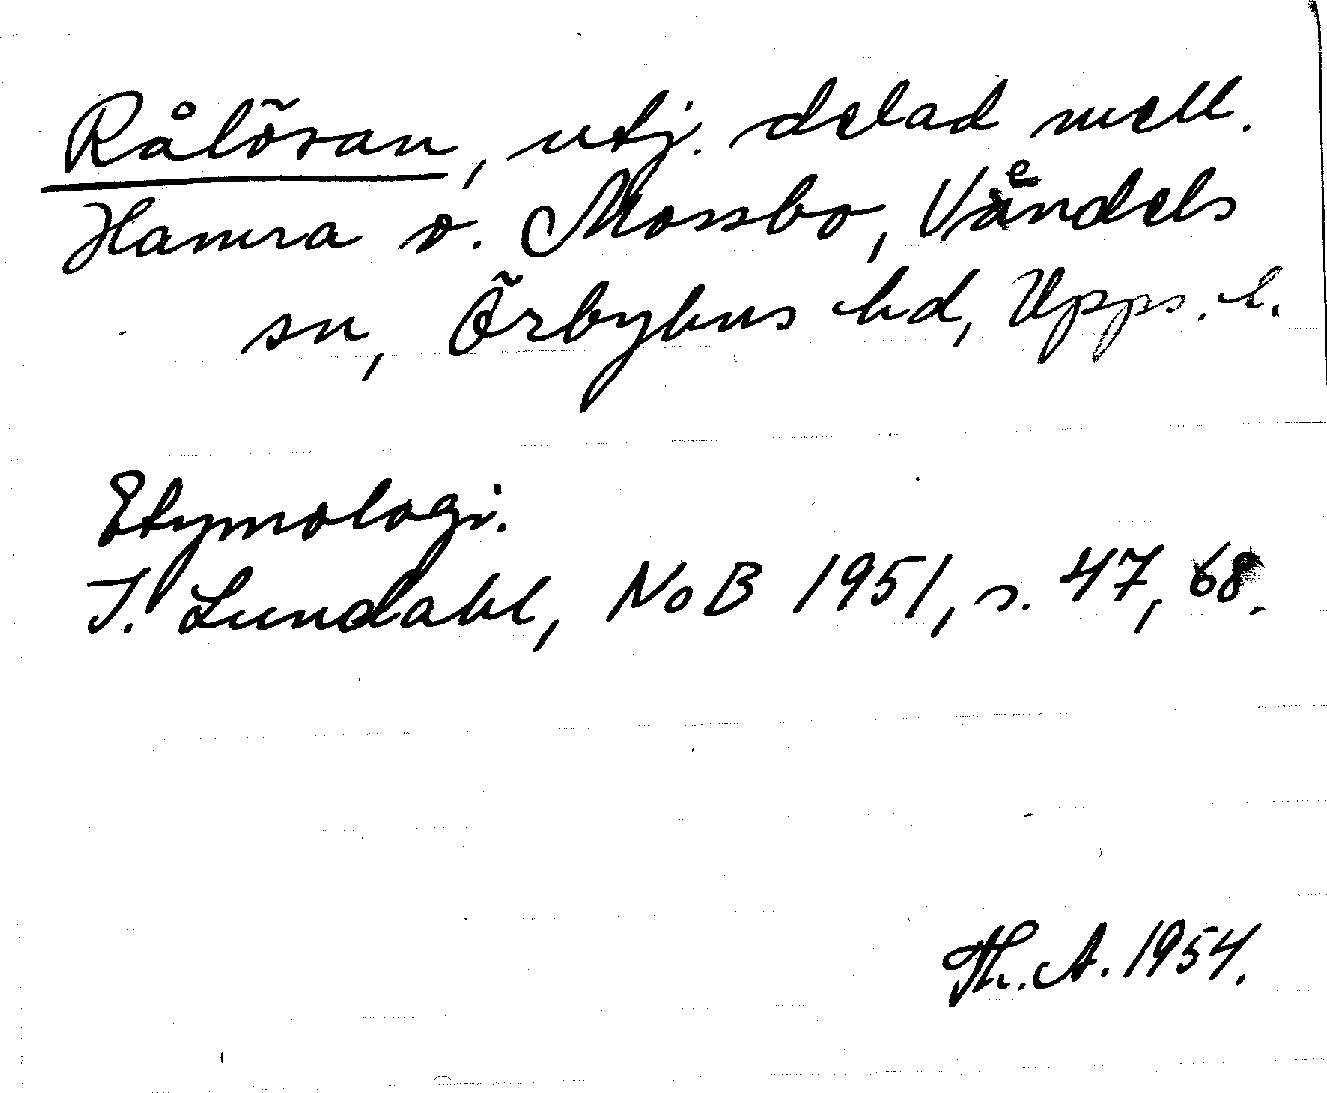 Rålösan, utj. delad mell.
Hamra o. Mossbo, Vendels
sn, Örbyhus hd, Upps. l.
Etymologi.
I. Lundahl, NoB 1951, s. 47, 68.
Th. A. 1954.